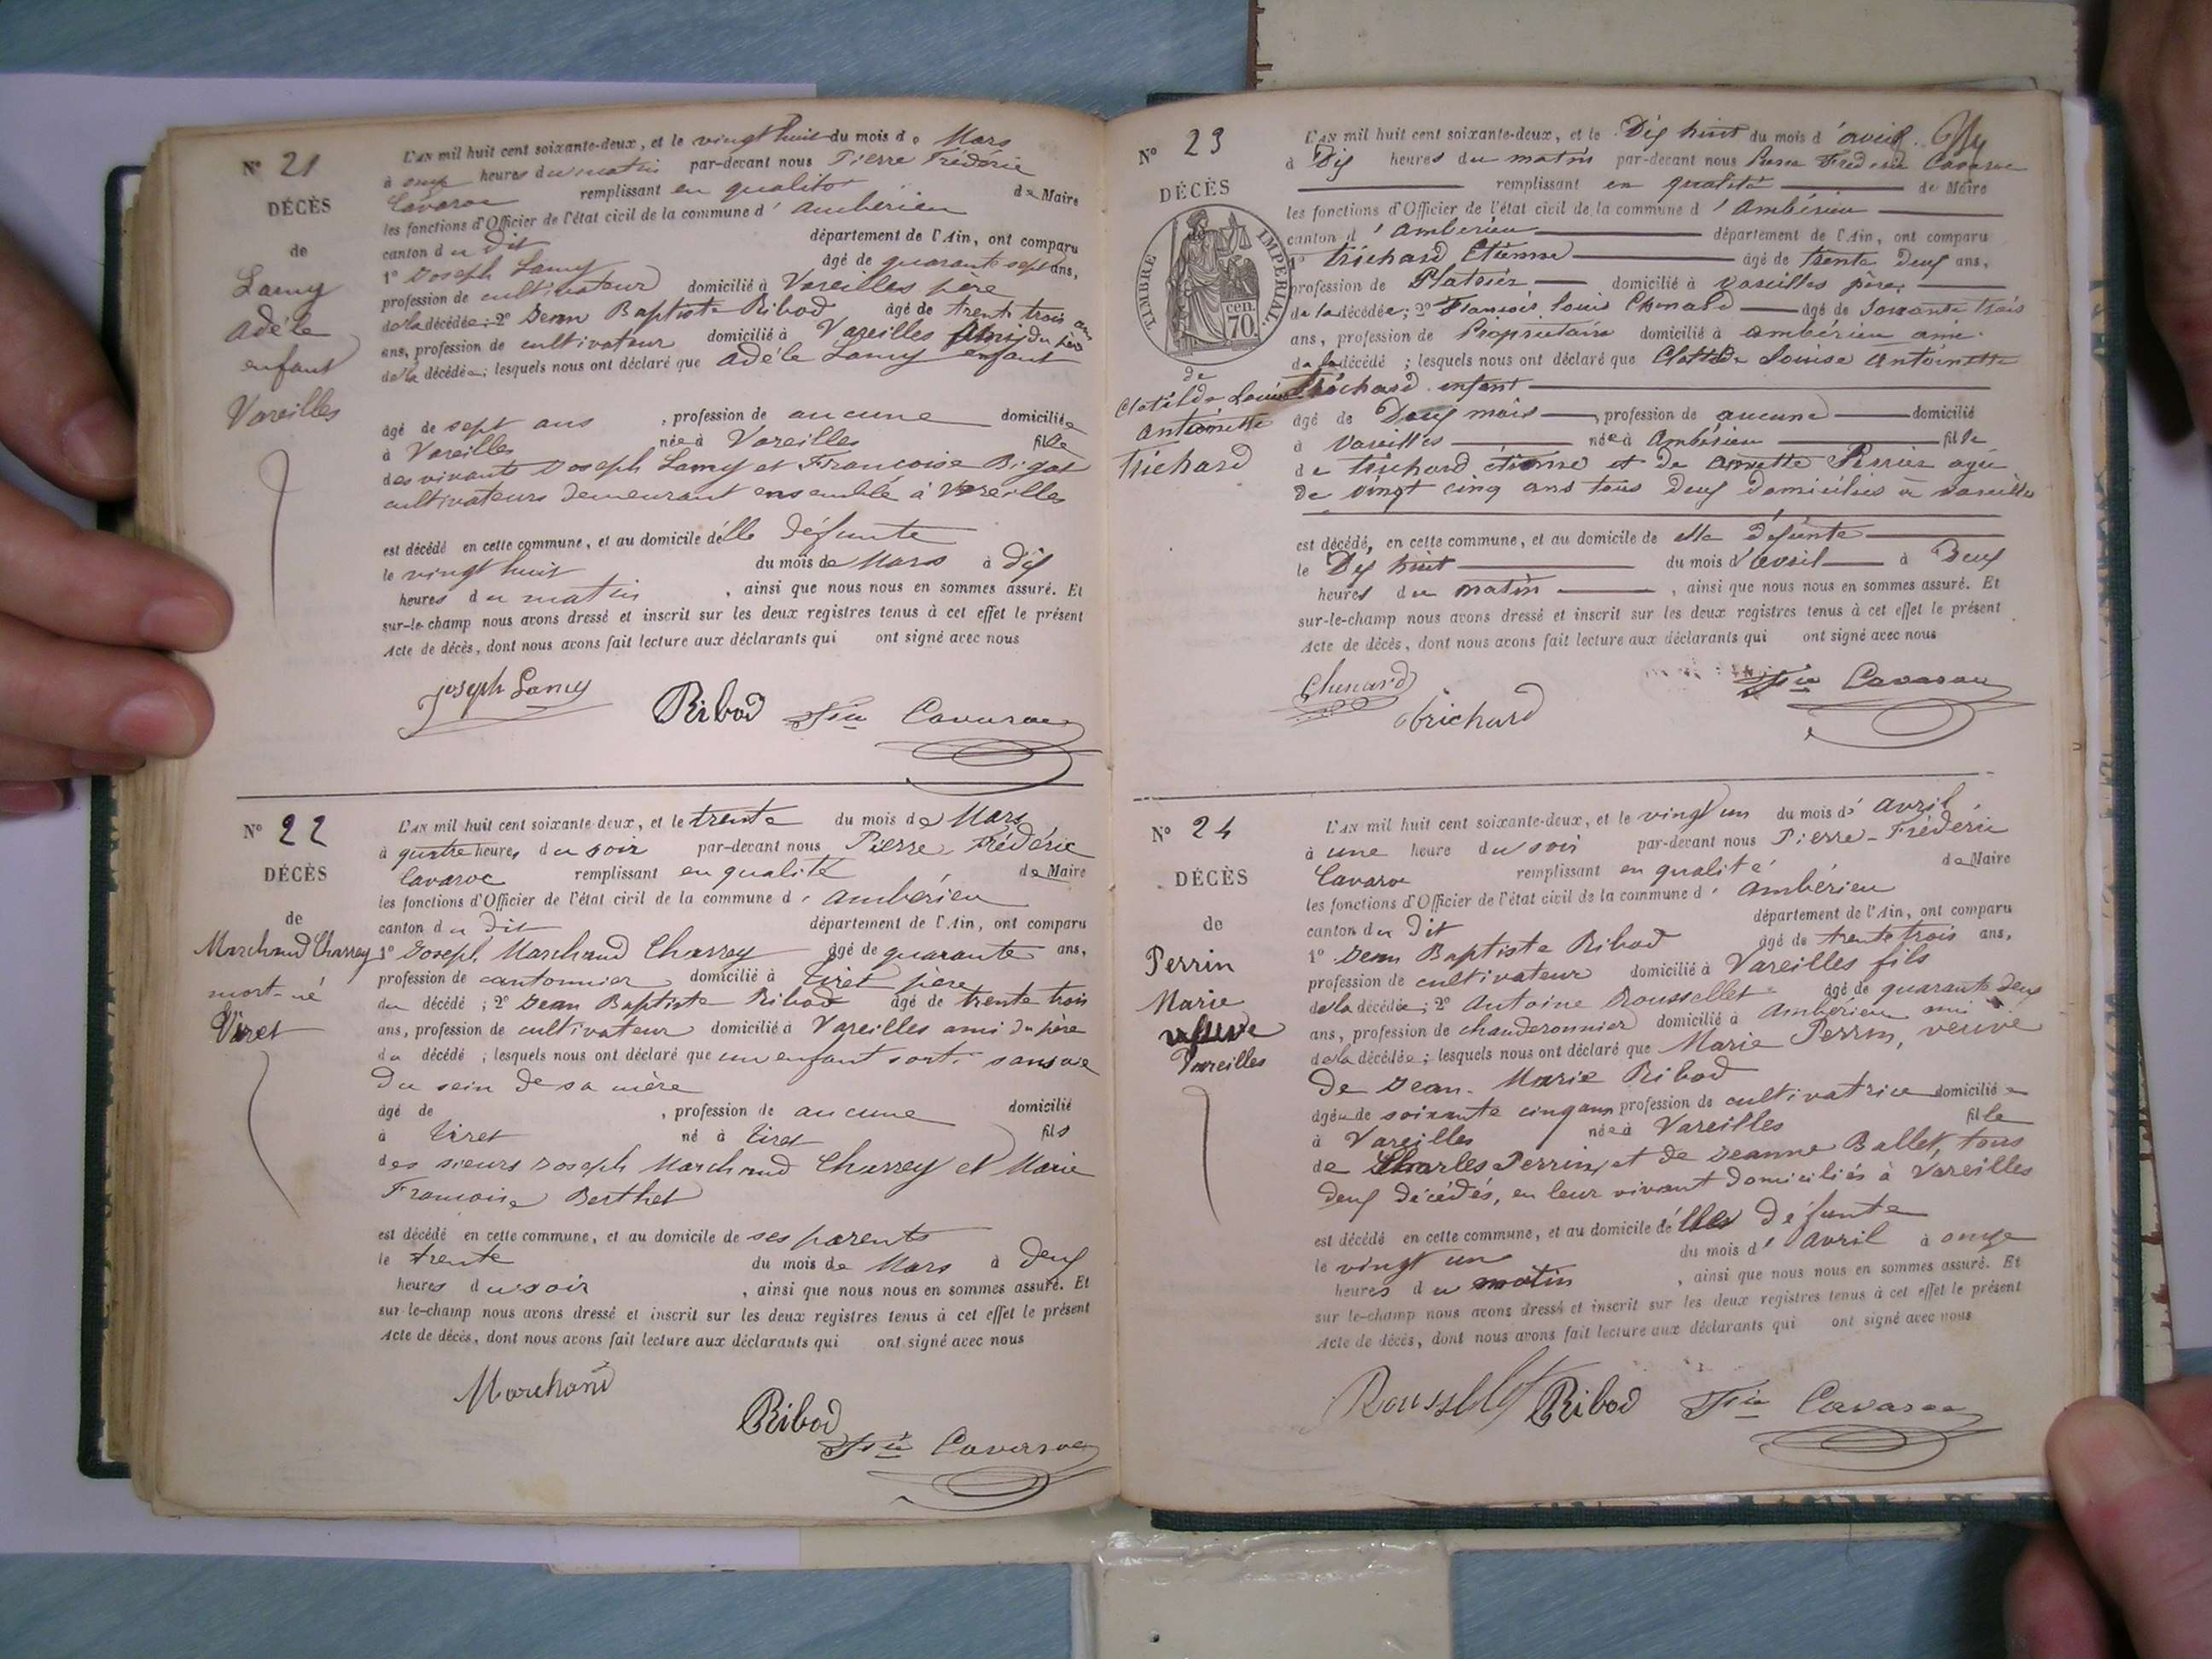 N° 21
DÉCÈS
de
Lamy
Adéle
enfant
Vareilles
L'AN mil huit cent soixante-deux, et le vingt huit du mois de Mars
à onze heures du matin par-devant nous Pierre Fréderic
Cavaroc remplissant en qualité de Maire
les fonctions d'Officier de l'état civil de la commune d' Ambérieu
canton du dit département de l'Ain, ont comparu
1° Joseph Lamy âgé de quarante sept ans,
profession de cultivateur domicilié à Vareilles père
de la décédée; 2° Jean Baptiste Ribod âgé de trente trois
ans, profession de cultivateur domicilié à Vareilles ami du père
de la décédée; lesquels nous ont déclaré que Adéle Lamy enfant
âgé de sept ans, profession de aucune domiciliée
à Vareilles née à Vareilles fille
des vivants Joseph Lamy et Françoise Bigot
cultivateurs demeurant ensemble à Vareilles
est décédé en cette commune, et au domicile de lle défunte
le vingt huit du mois de Mars à dix
heures du matin, ainsi que nous nous en sommes assuré. Et
sur-le-champ nous avons dressé et inscrit sur les deux registres tenus à cet effet le présent
Acte de décès, dont nous avons fait lecture aux déclarants qui ont signé avec nous
Joseph Lamy Ribod Fric Cavaroc
N° 22
DÉCÈS
de
Marchand Charrey
mort-né
Tiret
L'AN mil huit cent soixante-deux, et le trente du mois de Mars
à quatre heures du soir par-devant nous Pierre Fréderic
Cavaroc remplissant en qualité de Maire
les fonctions d'Officier de l'état civil de la commune d' Ambérieu
canton du dit département de l'Ain, ont comparu
1° Joseph Marchand Charrey âgé de quarante ans,
profession de cantonnier domicilié à Tiret père
du décédé; 2° Jean Baptiste Ribod âgé de trente trois
ans, profession de cultivateur domicilié à Vareilles ami du père
du décédé; lesquels nous ont déclaré que un enfant sorti sans vie
du sein de sa mère
âgé de, profession de aucune domicilié
à Tiret né à Tiret fils
des sieurs Joseph Marchand Charrey et Marie
Françoise Berthet
est décédé en cette commune, et au domicile de ses parents
le trente du mois de Mars à deux
heures du soir, ainsi que nous nous en sommes assuré. Et
sur-le-champ nous avons dressé et inscrit sur les deux registres tenus à cet effet le présent
Acte de décès, dont nous avons fait lecture aux déclarants qui ont signé avec nous
Marchand
Ribod
Fric Cavaroc
N° 23
DÉCÈS
TIMBRE IMPERIAL
70 cen.
de
Clotilde Louise
Antoinette
Trichard
L'AN mil huit cent soixante-deux, et le Dix huit du mois d'avril
à Dix heures du matin par-devant nous Pierre Frederic Cavaroc
remplissant en qualité de Maire
les fonctions d'Officier de l'état civil de la commune d'Ambérieu
canton d'Ambérieu département de l'Ain, ont comparu
1° Trichard Etienne âgé de trente deux ans,
profession de Platrier domicilié à Vareilles père
de la décédée; 2° François Louis Chenard âgé de Soixante trois
ans, profession de Propriétaire domicilié à Ambérieu ami
de la décédé; lesquels nous ont déclaré que Clotilde Louise Antoinette
Trichard enfant
âgé de Deux mois, profession de aucune domicilié
à Vareilles née à Ambérieu fille
de Trichard étienne et de Annette Perrier agée
de vingt cinq ans tous deux domiciliés à Vareilles
est décédé, en cette commune, et au domicile de elle défunte
le Dix huit du mois d'avril à Deux
heures du matin, ainsi que nous nous en sommes assuré. Et
sur-le-champ nous avons dressé et inscrit sur les deux registres tenus à cet effet le présent
Acte de décès, dont nous avons fait lecture aux déclarants qui ont signé avec nous
Chenard Trichard Fric Cavaroc
N° 24
DÉCÈS
de
Perrin
Marie
veuve
Vareilles
L'AN mil huit cent soixante-deux, et le vingt un du mois d' avril
à une heure du soir par-devant nous Pierre-Fréderic
Cavaroc remplissant en qualité de Maire
les fonctions d'Officier de l'état civil de la commune d' Ambérieu
canton du dit département de l'Ain, ont comparu
1° Jean Baptiste Ribod âgé de trente trois ans,
profession de cultivateur domicilié à Vareilles fils
de la décédée; 2° Antoine Roussellet âgé de quarante deux
ans, profession de chauderonnier domicilié à Ambérieu ami
de la décédée; lesquels nous ont déclaré que Marie Perrin, veuve
de Jean-Marie Ribod
âgée de soixante cinq ans profession de cultivatrice domiciliée
à Vareilles née à Vareilles fille
de Charles Perrin, et de Jeanne Ballet, tous
deux décédés, en leur vivant domiciliés à Vareilles
est décédé en cette commune, et au domicile de elle défunte
le vingt un du mois d' avril à onze
heures du matin, ainsi que nous nous en sommes assuré. Et
sur le-champ nous avons dressé et inscrit sur les deux registres tenus à cet effet le présent
Acte de décès, dont nous avons fait lecture aux déclarants qui ont signé avec nous
Roussellet Ribod Fric Cavaroc